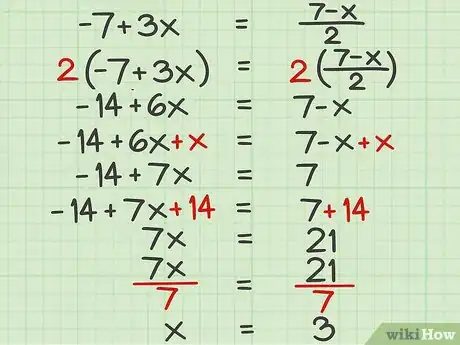 -7+3x = 7-x/2
2(-7+3x) = 2(7-x/2)
-14+6x = 7-x
-14+6x+x = 7-x+x
-14+7x = 7
-14+7x+14 = 7+14
7x = 21
7x/7 = 21/7
x = 3
wikiHow